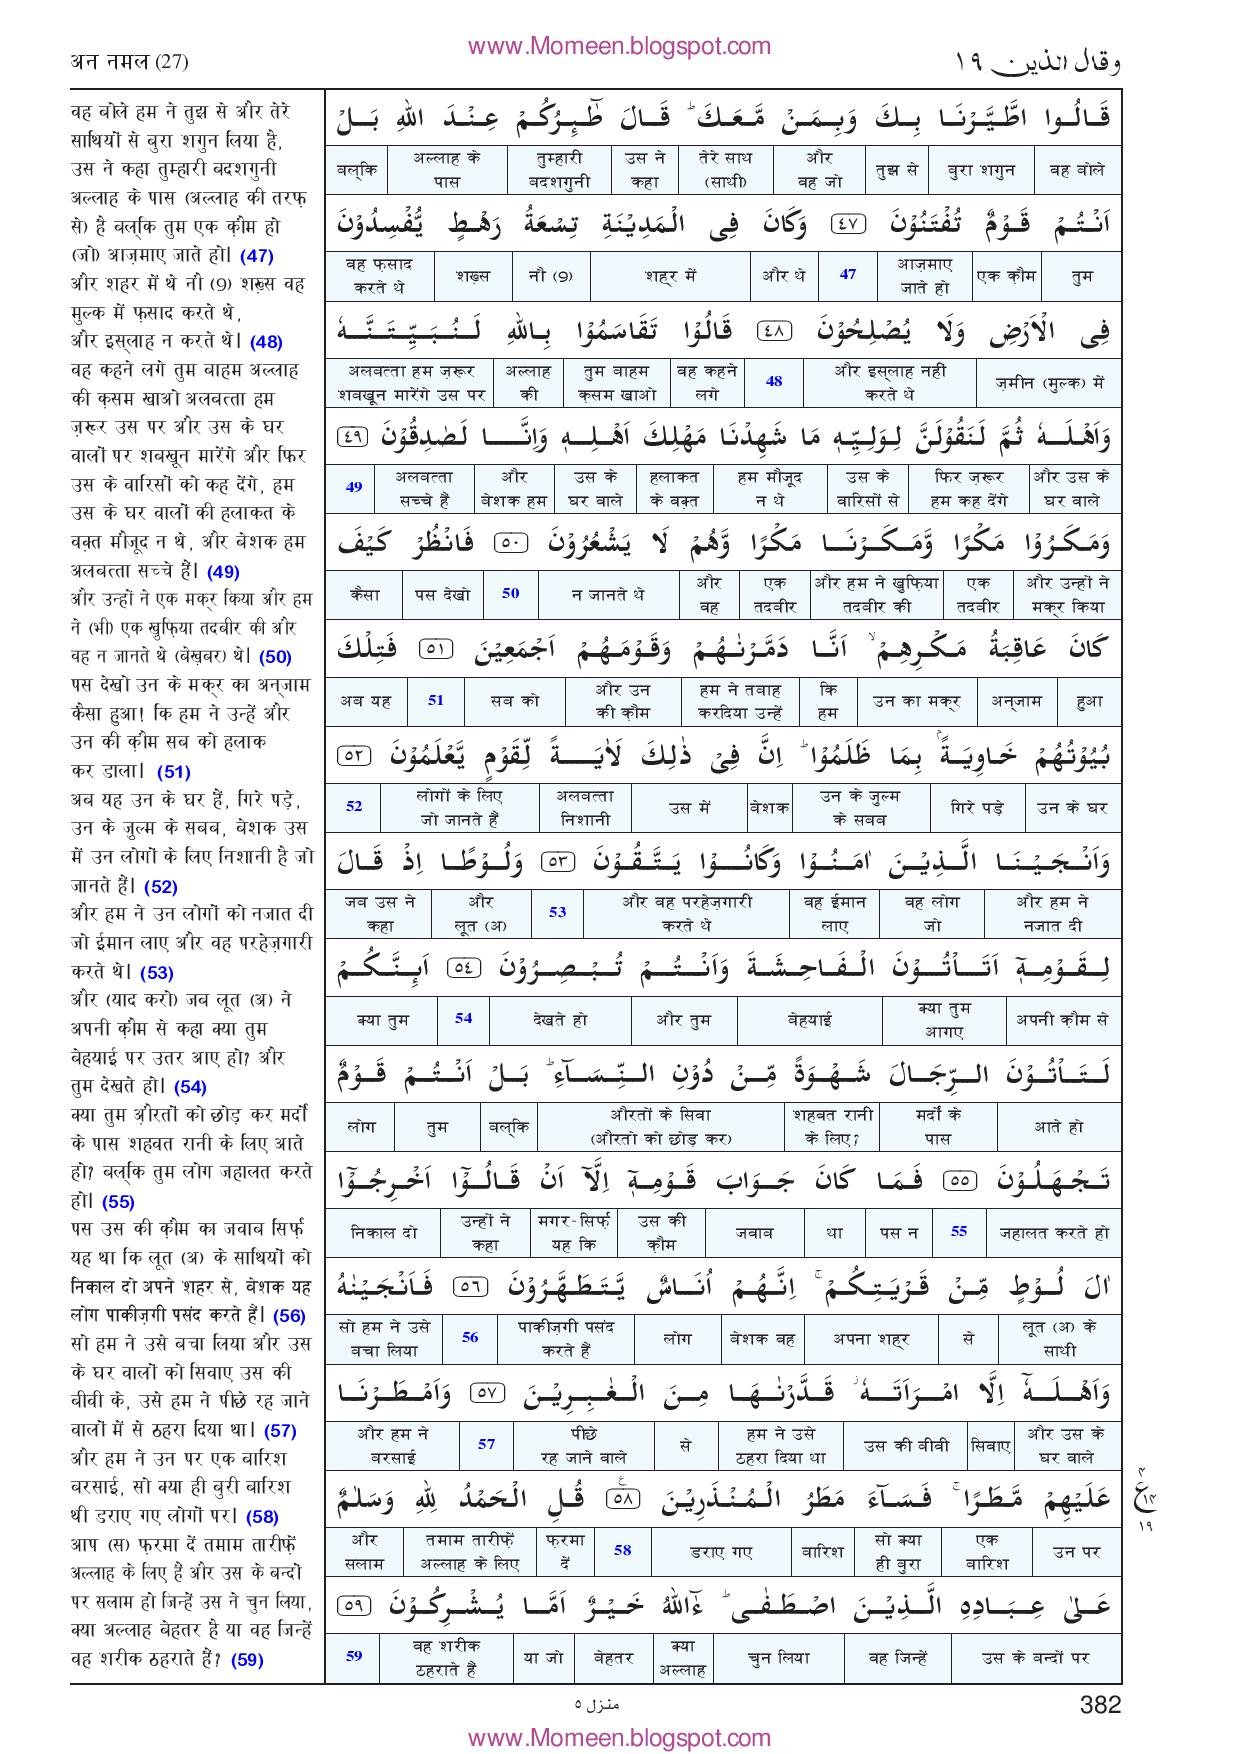 www.Momeen.blogspot.com
अन नमल (27)
وقال الذين ١٩
वह बोले हम ने तुझ से और तेरे
साथियों से बुरा शगुन लिया है,
उस ने कहा तुम्हारी बदशगुनी
अल्लाह के पास (अल्लाह की तरफ़
से) है बल्कि तुम एक क़ौम हो
(जो) आज़माए जाते हो। (47)
और शहर में थे नौ (9) शख़्स वह
मुल्क में फ़साद करते थे,
और इस्लाह न करते थे। (48)
वह कहने लगे तुम बाहम अल्लाह
की क़सम खाओ अलबत्ता हम
ज़रूर उस पर और उस के घर
वालों पर शबख़ून मारेंगे और फिर
उस के वारिसों को कह देंगे, हम
उस के घर वालों की हलाकत के
वक़्त मौजूद न थे, और बेशक हम
अलबत्ता सच्चे हैं। (49)
और उन्हों ने एक मक्र किया और हम
ने (भी) एक ख़ुफ़िया तदबीर की और
वह न जानते थे (बेख़बर) थे। (50)
पस देखो उन के मक्र का अन्जाम
कैसा हुआ! कि हम ने उन्हें और
उन की क़ौम सब को हलाक
कर डाला। (51)
अब यह उन के घर हैं, गिरे पड़े,
उन के ज़ुल्म के सबब, बेशक उस
में उन लोगों के लिए निशानी है जो
जानते हैं। (52)
और हम ने उन लोगों को नजात दी
जो ईमान लाए और वह परहेज़गारी
करते थे। (53)
और (याद करो) जब लूत (अ) ने
अपनी क़ौम से कहा क्या तुम
बेहयाई पर उतर आए हो? और
तुम देखते हो। (54)
क्या तुम औरतों को छोड़ कर मर्दों
के पास शहवत रानी के लिए आते
हो? बल्कि तुम लोग जहालत करते
हो। (55)
पस उस की क़ौम का जवाब सिर्फ़
यह था कि लूत (अ) के साथियों को
निकाल दो अपने शहर से, बेशक यह
लोग पाकीज़गी पसंद करते हैं। (56)
सो हम ने उसे बचा लिया और उस
के घर वालों को सिवाए उस की
बीवी के, उसे हम ने पीछे रह जाने
वालों में से ठहरा दिया था। (57)
और हम ने उन पर एक बारिश
बरसाई, सो क्या ही बुरी बारिश
थी डराए गए लोगों पर। (58)
आप (स) फ़रमा दें तमाम तारीफ़ें
अल्लाह के लिए हैं और उस के बन्दों
पर सलाम हो जिन्हें उस ने चुन लिया,
क्या अल्लाह बेहतर है या वह जिन्हें
वह शरीक ठहराते हैं? (59)
قَالُوا اطَّيَّرْنَا بِكَ وَبِمَنْ مَّعَكَ ؕ قَالَ طٰٓئِرُكُمْ عِنْدَ اللهِ بَلْ
बल्कि | अल्लाह के पास | तुम्हारी बदशगुनी | उस ने कहा | तेरे साथ (साथी) | और वह जो | तुझ से | बुरा शगुन | वह बोले
اَنْتُمْ قَوْمٌ تُفْتَنُوْنَ ٤٧ وَكَانَ فِى الْمَدِيْنَةِ تِسْعَةُ رَهْطٍ يُّفْسِدُوْنَ
वह फ़साद करते थे | शख़्स | नौ (9) | शहर में | और थे | 47 | आज़माए जाते हो | एक क़ौम | तुम
فِى الْاَرْضِ وَلَا يُصْلِحُوْنَ ٤٨ قَالُوْا تَقَاسَمُوْا بِاللهِ لَنُبَيِّتَنَّهٗ
अलबत्ता हम ज़रूर शबख़ून मारेंगे उस पर | अल्लाह की | तुम बाहम क़सम खाओ | वह कहने लगे | 48 | और इस्लाह नहीं करते थे | ज़मीन (मुल्क) में
وَاَهْلَهٗ ثُمَّ لَنَقُوْلَنَّ لِوَلِيِّهٖ مَا شَهِدْنَا مَهْلِكَ اَهْلِهٖ وَاِنَّا لَصٰدِقُوْنَ ٤٩
49 | अलबत्ता सच्चे हैं | और बेशक हम | उस के घर वाले | हलाकत के वक़्त | हम मौजूद न थे | उस के वारिसों से | फिर ज़रूर हम कह देंगे | और उस के घर वाले
وَمَكَرُوْا مَكْرًا وَّمَكَرْنَا مَكْرًا وَّهُمْ لَا يَشْعُرُوْنَ ٥٠ فَانْظُرْ كَيْفَ
कैसा | पस देखो | 50 | न जानते थे | और वह | एक तदबीर | और हम ने ख़ुफ़िया तदबीर की | एक तदबीर | और उन्हों ने मक्र किया
كَانَ عَاقِبَةُ مَكْرِهِمْ ۙ اَنَّا دَمَّرْنٰهُمْ وَقَوْمَهُمْ اَجْمَعِيْنَ ٥١ فَتِلْكَ
अब यह | 51 | सब को | और उन की क़ौम | हम ने तबाह करदिया उन्हें | कि हम | उन का मक्र | अन्जाम | हुआ
بُيُوْتُهُمْ خَاوِيَةًۢ بِمَا ظَلَمُوْا ؕ اِنَّ فِىْ ذٰلِكَ لَاٰيَةً لِّقَوْمٍ يَّعْلَمُوْنَ ٥٢
52 | लोगों के लिए जो जानते हैं | अलबत्ता निशानी | उस में | बेशक | उन के ज़ुल्म के सबब | गिरे पड़े | उन के घर
وَاَنْجَيْنَا الَّذِيْنَ اٰمَنُوْا وَكَانُوْا يَتَّقُوْنَ ٥٣ وَلُوْطًا اِذْ قَالَ
जब उस ने कहा | और लूत (अ) | 53 | और वह परहेज़गारी करते थे | वह ईमान लाए | वह लोग जो | और हम ने नजात दी
لِقَوْمِهٖٓ اَتَاْتُوْنَ الْفَاحِشَةَ وَاَنْتُمْ تُبْصِرُوْنَ ٥٤ اَىِٕنَّكُمْ
क्या तुम | 54 | देखते हो | और तुम | बेहयाई | क्या तुम आगए | अपनी क़ौम से
لَتَاْتُوْنَ الرِّجَالَ شَهْوَةً مِّنْ دُوْنِ النِّسَآءِ ؕ بَلْ اَنْتُمْ قَوْمٌ
लोग | तुम | बल्कि | औरतों के सिवा (औरतो को छोड़ कर) | शहवत रानी के लिए? | मर्दों के पास | आते हो
تَجْهَلُوْنَ ٥٥ فَمَا كَانَ جَوَابَ قَوْمِهٖٓ اِلَّآ اَنْ قَالُوْٓا اَخْرِجُوْٓا
निकाल दो | उन्हों ने कहा | मगर-सिर्फ़ यह कि | उस की क़ौम | जवाब | था | पस न | 55 | जहालत करते हो
اٰلَ لُوْطٍ مِّنْ قَرْيَتِكُمْ ۚ اِنَّهُمْ اُنَاسٌ يَّتَطَهَّرُوْنَ ٥٦ فَاَنْجَيْنٰهُ
सो हम ने उसे बचा लिया | 56 | पाकीज़गी पसंद करते हैं | लोग | बेशक वह | अपना शहर | से | लूत (अ) के साथी
وَاَهْلَهٗٓ اِلَّا امْرَاَتَهٗ ؗ قَدَّرْنٰهَا مِنَ الْغٰبِرِيْنَ ٥٧ وَاَمْطَرْنَا
और हम ने बरसाई | 57 | पीछे रह जाने वाले | से | हम ने उसे ठहरा दिया था | उस की बीवी | सिवाए | और उस के घर वाले
عَلَيْهِمْ مَّطَرًا ۚ فَسَآءَ مَطَرُ الْمُنْذَرِيْنَ ٥٨ ع قُلِ الْحَمْدُ لِلهِ وَسَلٰمٌ
और सलाम | तमाम तारीफ़ें अल्लाह के लिए | फ़रमा दें | 58 | डराए गए | बारिश | सो क्या ही बुरा | एक बारिश | उन पर
عَلٰى عِبَادِهِ الَّذِيْنَ اصْطَفٰى ؕ ءٰٓاللهُ خَيْرٌ اَمَّا يُشْرِكُوْنَ ٥٩
59 | वह शरीक ठहराते हैं | या जो | बेहतर | क्या अल्लाह | चुन लिया | वह जिन्हें | उस के बन्दों पर
٤
ع ١٤
١٩
منزل ٥
382
www.Momeen.blogspot.com